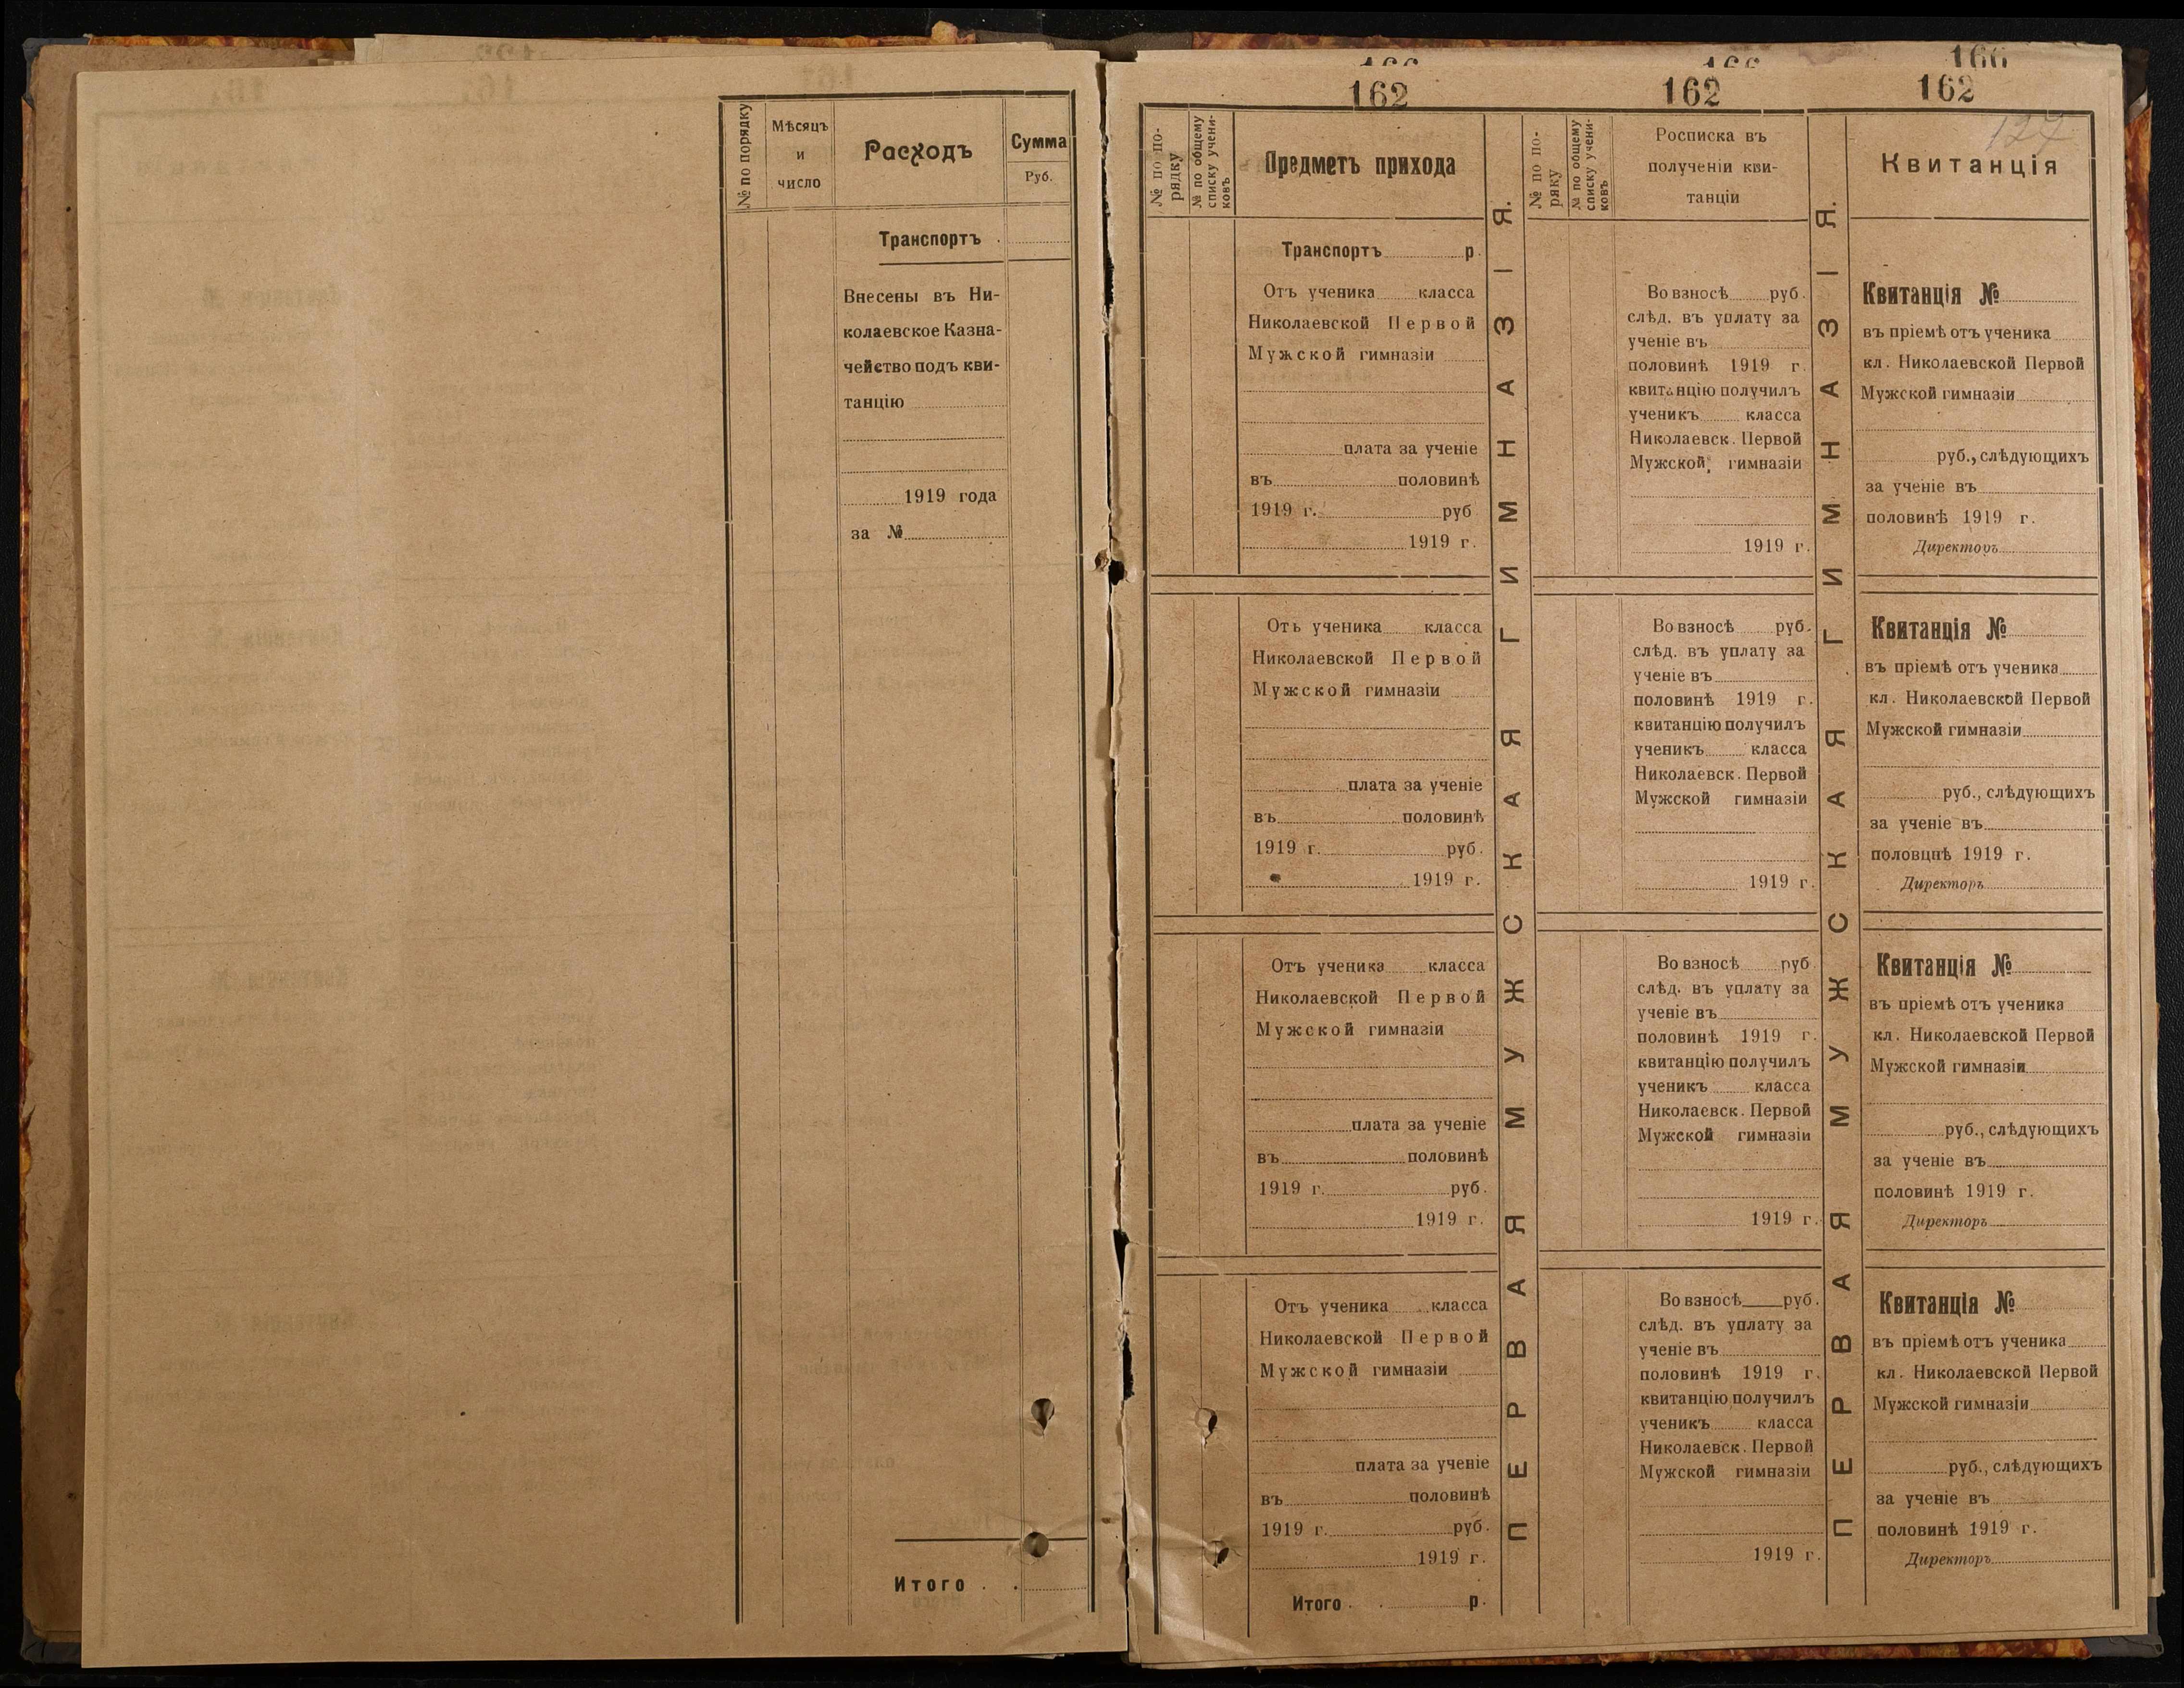 № по порядку
Мѣсяцъ
и
число
Расходъ
Сумма
Руб.
Транспортъ .
Внесены въ Ни-
колаевское Казна-
чейство подъ кви-
танцію
1919 года
за №
Итого . .
166
166
166
162
162
162
127
№ по по-
рядку
№ по общему
списку учени-
ковъ
Предметъ прихода
Транспортъ р.
Отъ ученика класса
Николаевской Первой
Мужской гимназіи
плата за ученіе
въ половинѣ
1919 г. руб
1919 г.
Отъ ученика класса
Николаевской Первой
Мужской гимназіи
плата за ученіе
въ половинѣ
1919 г. руб.
1919 г.
Отъ ученика класса
Николаевской Первой
Мужской гимназіи
плата за ученіе
въ половинѣ
1919 г. руб.
1919 г.
Отъ ученика класса
Николаевской Первой
Мужской гимназіи
плата за ученіе
въ половинѣ
1919 г. руб.
1919 г.
Итого . . р.
ПЕРВАЯ МУЖСКАЯ ГИМНАЗІЯ.
№ по по-
ряку
№ по общему
списку учени-
ковъ
Росписка въ
полученіи кви-
танціи
Во взносѣ руб.
слѣд. въ уплату за
ученіе въ
половинѣ 1919 г.
квитанцію получилъ
ученикъ класса
Николаевск. Первой
Мужской гимназіи
1919 г.
Во взносѣ руб.
слѣд. въ уплату за
ученіе въ
половинѣ 1919 г.
квитанцію получилъ
ученикъ класса
Николаевск. Первой
Мужской гимназіи
1919 г.
Во взносѣ руб
слѣд. въ уплату за
ученіе въ
половинѣ 1919 г.
квитанцію получилъ
ученикъ класса
Николаевск. Первой
Мужской гимназіи
1919 г.
Во взносѣ руб.
слѣд. въ уплату за
ученіе въ
половинѣ 1919 г.
квитанцію получилъ
ученикъ класса
Николаевск. Первой
Мужской гимназіи
1919 г.
ПЕРВАЯ МУЖСКАЯ ГИМНАЗІЯ.
Квитанція
Квитанція №
въ пріемѣ отъ ученика
кл. Николаевской Первой
Мужской гимназіи
руб., слѣдующихъ
за ученіе въ
половинѣ 1919 г.
Директоръ
Квитанція №
въ пріемѣ отъ ученика
кл. Николаевской Первой
Мужской гимназіи
руб., слѣдующихъ
за ученіе въ
половцнѣ 1919 г.
Директоръ
Квитанція №
въ пріемѣ отъ ученика
кл. Николаевской Первой
Мужской гимназіи
руб., слѣдующихъ
за ученіе въ
половинѣ 1919 г.
Директоръ
Квитанція №
въ пріемѣ отъ ученика
кл. Николаевской Первой
Мужской гимназіи
руб., слѣдующихъ
за ученіе въ
половинѣ 1919 г.
Директоръ